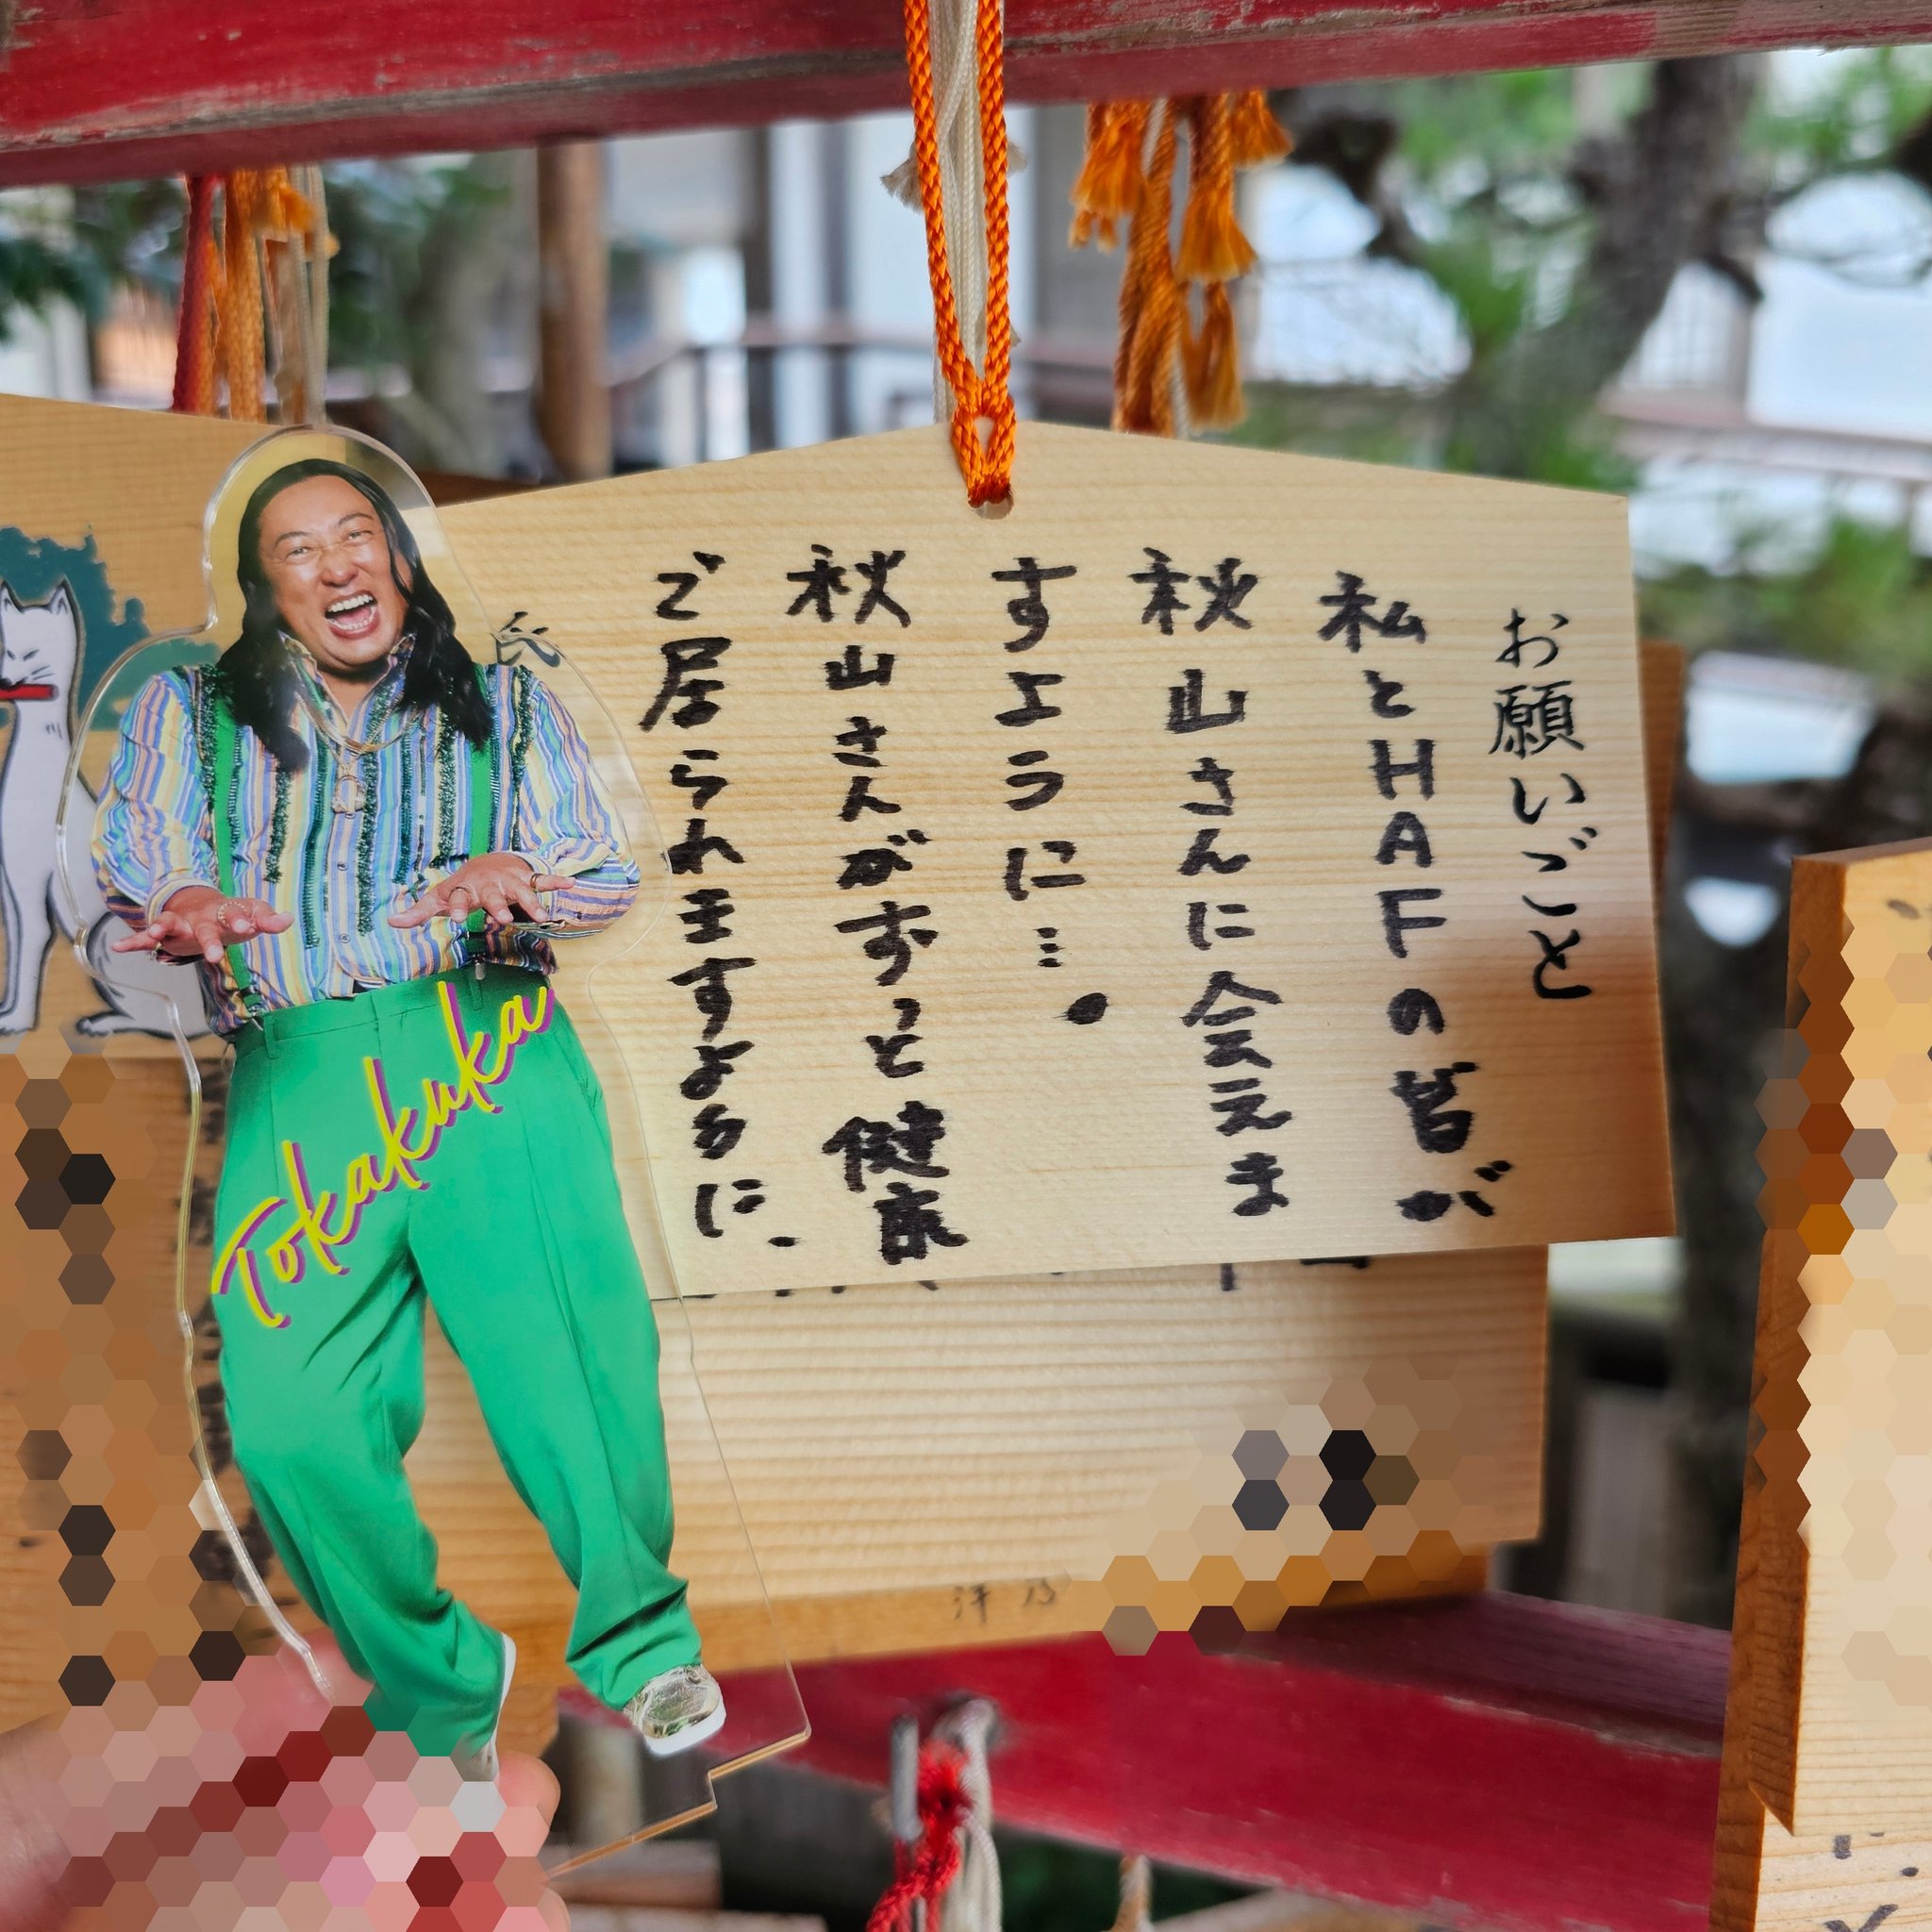 お願いごと
私とHAFの皆が
秋山さんに会えま
すように…。
秋山さんがずっと健康
で居られますように.
氏
Tokakuka